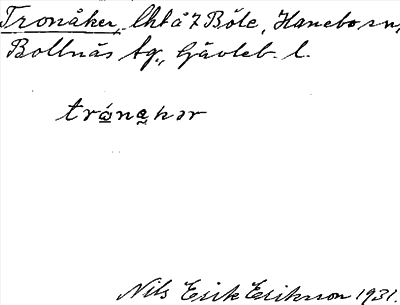 Tronåker, lht å 7 Böle, Hanebo sn,
Bollnäs tg., Gävleb. l.
trónąkər
Nils Erik Eriksson 1931.